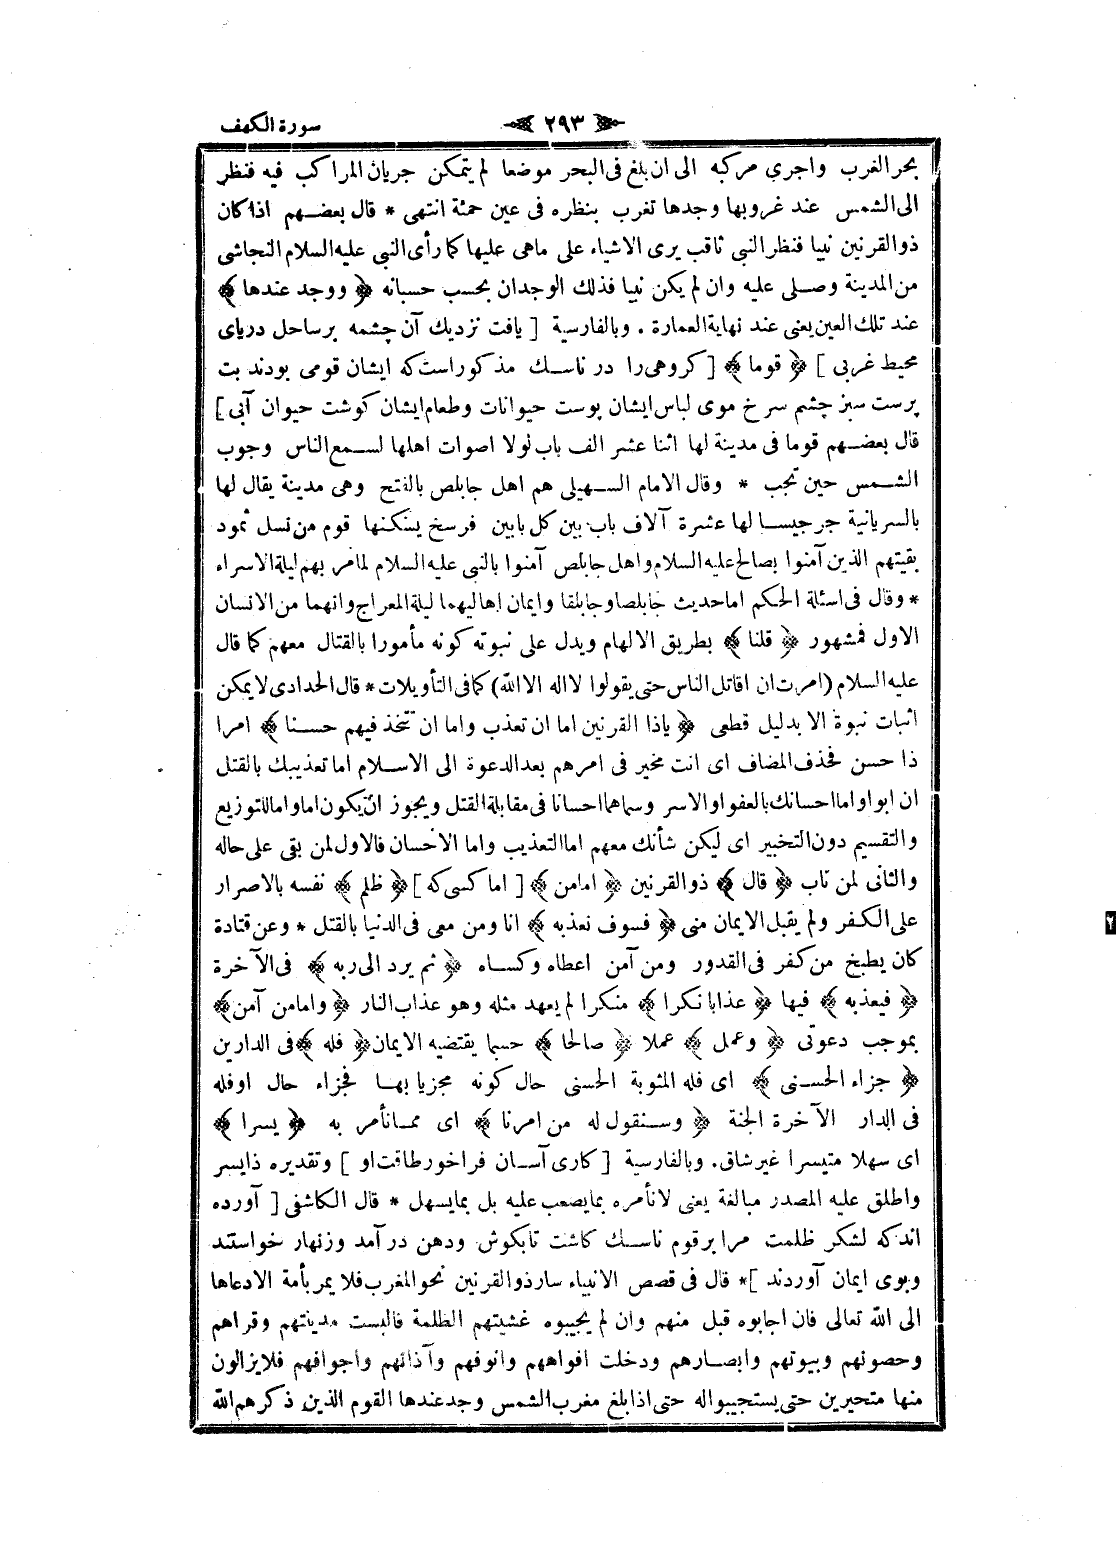 سورة الكهف
٢٩٣
بحر الغرب واجرى مركبه الى ان بلغ فى البحر موضعا لم يتمكن جريان المراكب فيه فنظر
الى الشمس عند غروبها وجدها تغرب بنظره فى عين حمئة انتهى * قال بعضهم اذا كان
ذوالقرنين نبيا فنظر النبى ثاقب يرى الاشياء على ماهى عليها كما رأى النبى عليه السلام النجاشى
من المدينة وصلى عليه وان لم يكن نبيا فذلك الوجدان بحسب حسبانه ﴿ ووجد عندها ﴾
عند تلك العين يعنى عند نهاية العمارة . وبالفارسية [ يافت نزديك آن چشمه بر ساحل درياى
محيط غربى ] ﴿ قوما ﴾ [ كروهى را در ناسك مذكور است كه ايشان قومى بودند بت
پرست سبز چشم سرخ موى لباس ايشان پوست حيوانات وطعام ايشان كوشت حيوان آبى ]
قال بعضهم قوما فى مدينة لها اثنا عشر الف باب لولا اصوات اهلها لسمع الناس وجوب
الشمس حين تجب * وقال الامام السهيلى هم اهل جابلص بالفتح وهى مدينة يقال لها
بالسريانية جرجيسا لها عشرة آلاف باب بين كل بابين فرسخ يسكنها قوم من نسل ثمود
بقيتهم الذين آمنوا بصالح عليه السلام واهل جابلص آمنوا بالنبى عليه السلام لما مر بهم ليلة الاسراء
* وقال فى اسئلة الحكم اما حديث جابلصا وجابلقا وايمان اهاليهما ليلة المعراج وانهما من الانسان
الاول فمشهور ﴿ قلنا ﴾ بطريق الالهام ويدل على نبوته كونه مأمورا بالقتال معهم كما قال
عليه السلام (امرت ان اقاتل الناس حتى يقولوا لا اله الا الله) كما فى التأويلات * قال الحدادى لا يمكن
اثبات نبوة الا بدليل قطعى ﴿ ياذا القرنين اما ان تعذب واما ان تتخذ فيهم حسنا ﴾ امرا
ذا حسن فحذف المضاف اى انت مخير فى امرهم بعد الدعوة الى الاسلام اما تعذيبك بالقتل
ان ابوا واما احسانك بالعفو او الاسر وسماهما احسانا فى مقابلة القتل ويجوز ان يكون اما واما للتوزيع
والتقسيم دون التخيير اى ليكن شأنك معهم اما التعذيب واما الاحسان فالاول لمن بقى على حاله
والثانى لمن تاب ﴿ قال ﴾ ذوالقرنين ﴿ امامن ﴾ [ اما كسى كه ] ﴿ ظلم ﴾ نفسه بالاصرار
على الكفر ولم يقبل الايمان منى ﴿ فسوف نعذبه ﴾ انا ومن معى فى الدنيا بالقتل * وعن قتادة
كان يطبخ من كفر فى القدور ومن آمن اعطاه وكساه ﴿ ثم يرد الى ربه ﴾ فى الآخرة
﴿ فيعذبه ﴾ فيها ﴿ عذابا نكرا ﴾ منكرا لم يعهد مثله وهو عذاب النار ﴿ وامامن آمن ﴾
بموجب دعوتى ﴿ وعمل ﴾ عملا ﴿ صالحا ﴾ حسبما يقتضيه الايمان ﴿ فله ﴾ فى الدارين
﴿ جزاء الحسنى ﴾ اى فله المثوبة الحسنى حال كونه مجزيا بها فجزاء حال اوفله
فى الدار الآخرة الجنة ﴿ وسنقول له من امرنا ﴾ اى مما نأمر به ﴿ يسرا ﴾
اى سهلا متيسرا غير شاق. وبالفارسية [ كارى آسان فراخور طاقت او ] وتقديره ذا يسر
واطلق عليه المصدر مبالغة يعنى لا نأمره بما يصعب عليه بل بما يسهل * قال الكاشفى [ آورده
اند كه لشكر ظلمت مرا بر قوم ناسك كاشت تا بكوش ودهن در آمد وزنهار خواستند
وبوى ايمان آوردند ] * قال فى قصص الانبياء سار ذوالقرنين نحو المغرب فلا يمر بأمة الا دعاها
الى الله تعالى فان اجابوه قبل منهم وان لم يجيبوه غشيتهم الظلمة فالبست مدينتهم وقراهم
وحصونهم وبيوتهم وابصارهم ودخلت افواههم وانوفهم وآذانهم واجوافهم فلا يزالون
منها متحيرين حتى يستجيبوا له حتى اذا بلغ مغرب الشمس وجد عندها القوم الذين ذكرهم الله
٢